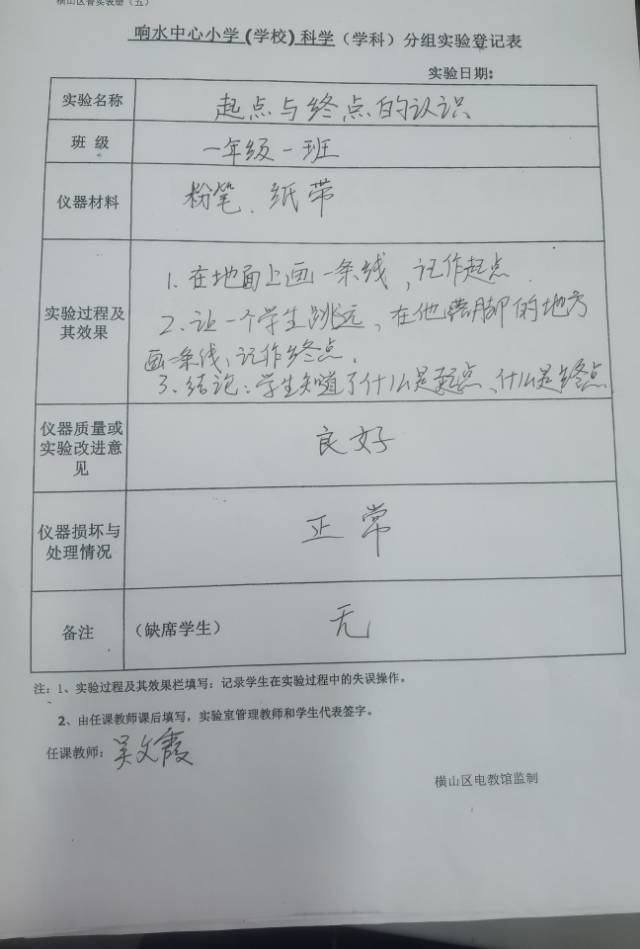 横山区普实表册（五）
响水中心小学(学校)科学（学科）分组实验登记表
实验日期:
实验名称 起点与终点的认识
班 级 一年级一班
仪器材料 粉笔、纸带
实验过程及其效果
1.在地面上画一条线,记作起点
2.让一个学生跳远、在他落脚的地方
画一条线、记作终点.
3.结论:学生知道了什么是起点、什么是终点
仪器质量或实验改进意见 良好
仪器损坏与处理情况 正常
备注 (缺席学生) 无
注：1、实验过程及其效果栏填写：记录学生在实验过程中的失误操作。
2、由任课教师课后填写，实验室管理教师和学生代表签字。
任课教师：吴文霞
横山区电教馆监制